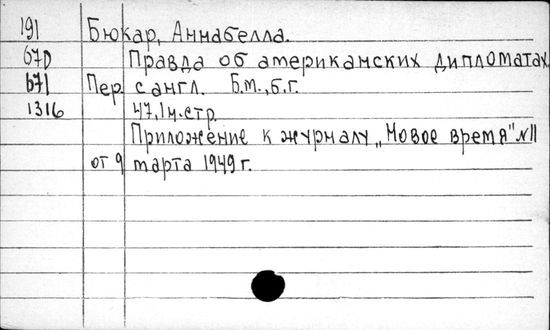 191 Бюкар, Аннабелла.
67D Правда об американских дипломатах.
b71 Пер. с англ. Б.м., б.г.
1316 47, 1 н. стр.
Приложение к журналу „Новое время" №11
от 9 марта 1949 г.